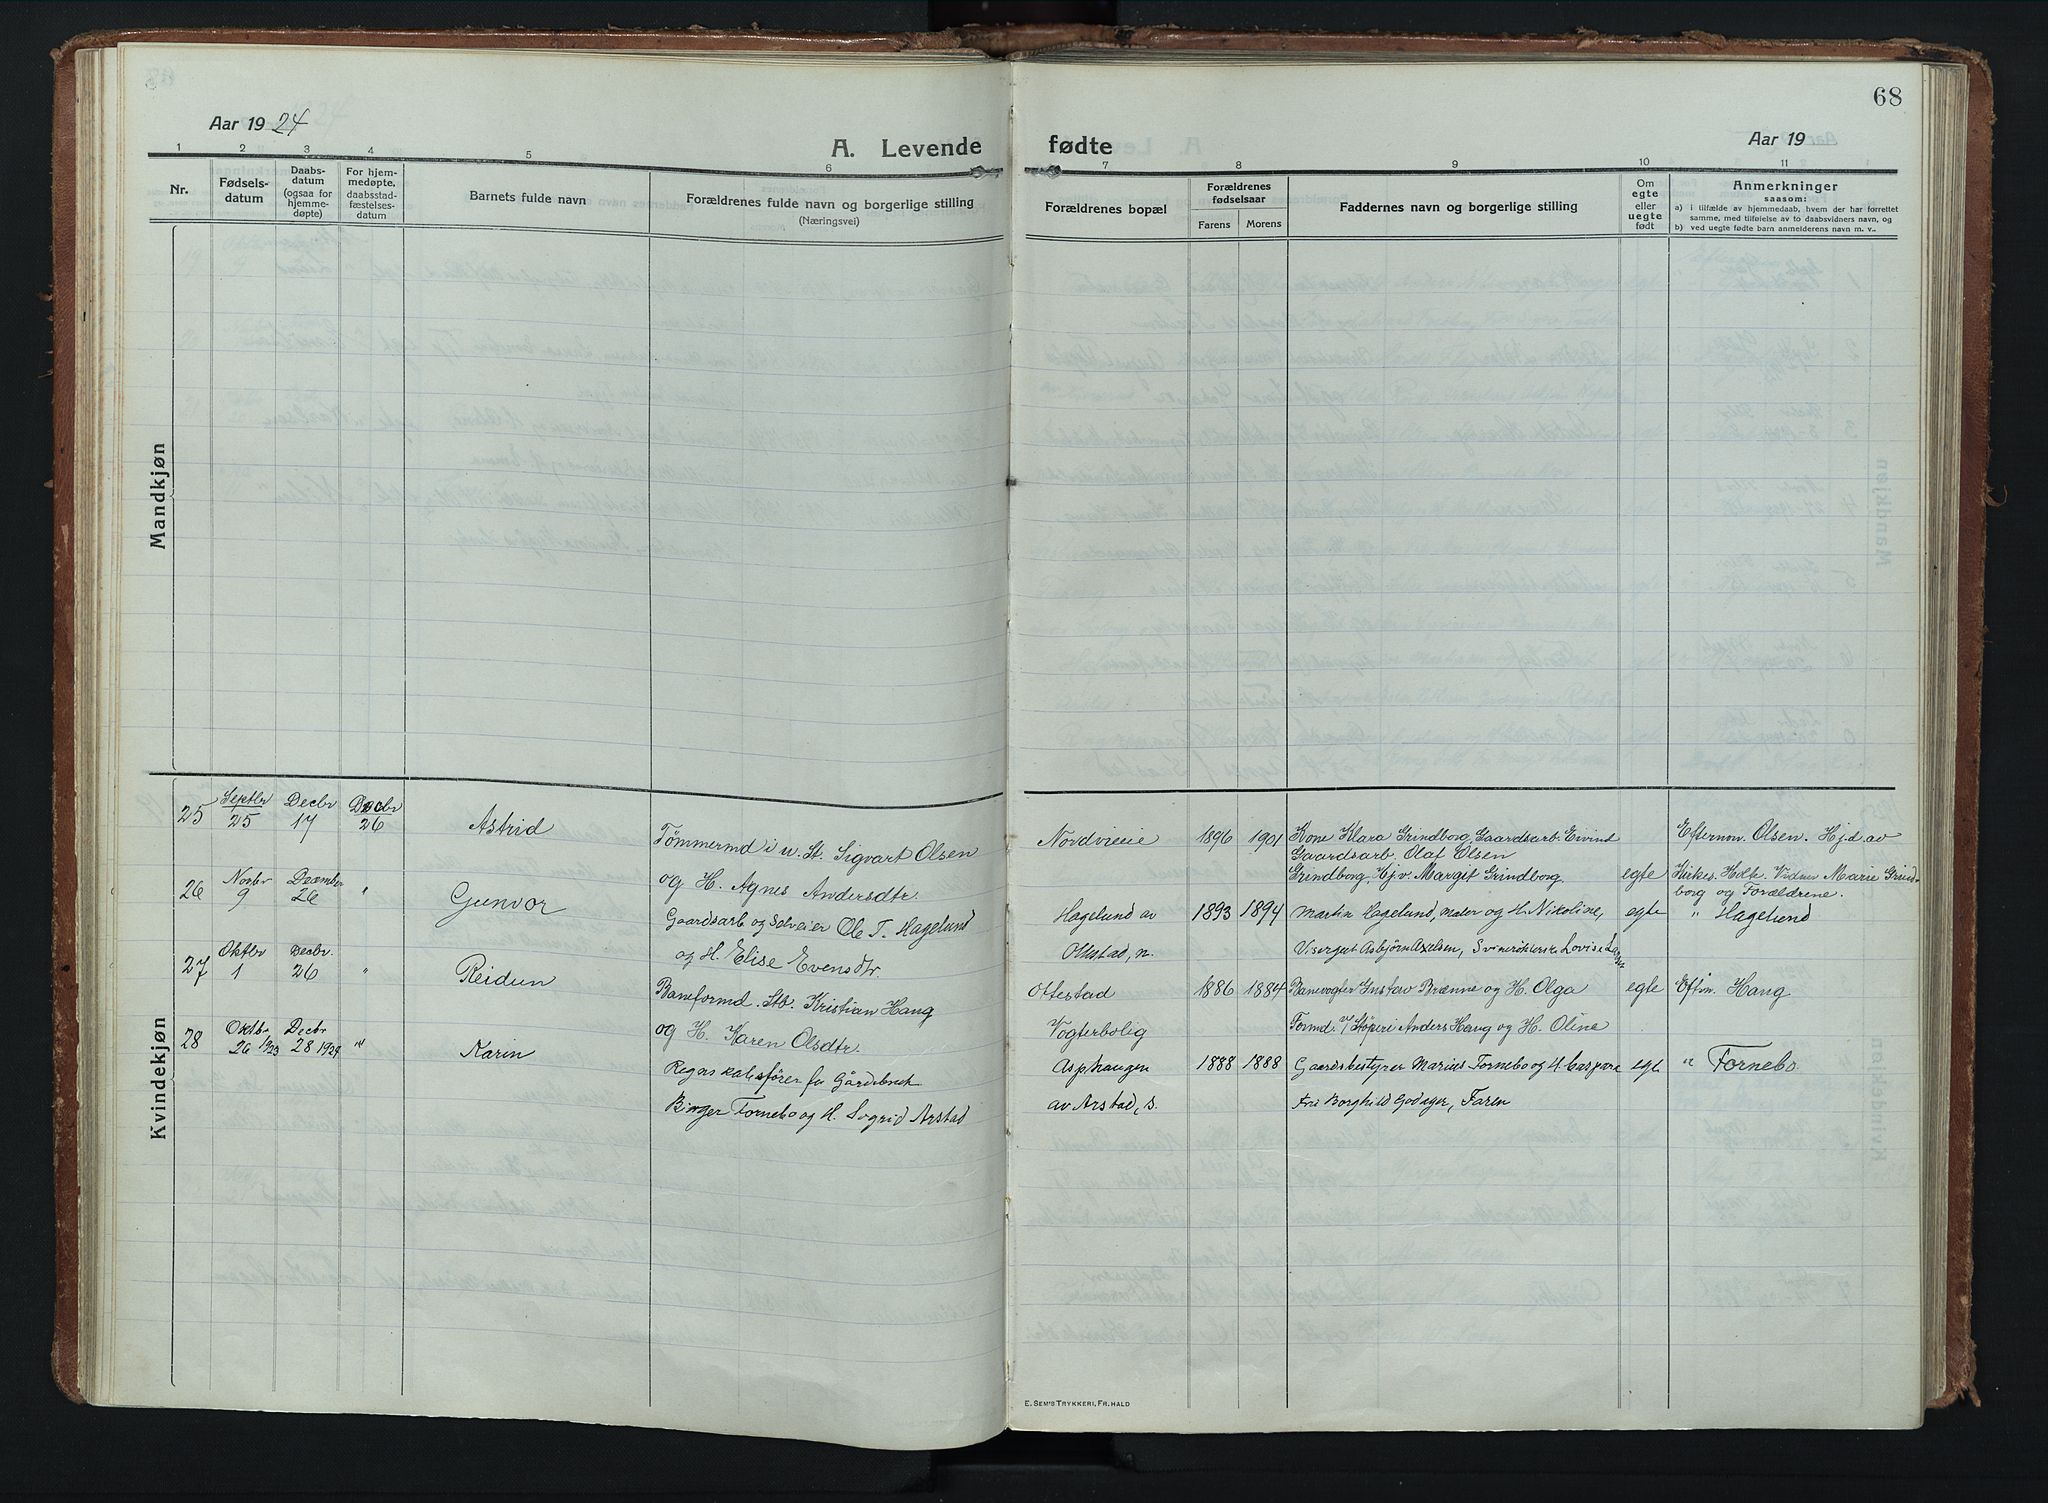 68
Aar 1924
A. Levende fødte
Aar 19
1 2 3 4 5 6 7 8 9 10 11
Nr.
Fødsels-
datum
Daabs-
datum
(ogsaa for
hjemme-
døpte)
For hjem-
medøpte,
daabsstad-
fæstelses-
datum
Barnets fulde navn
Forældrenes fulde navn og borgerlige stilling
(Næringsvei)
Forældrenes bopæl
Forældrenes
fødselsaar
Farens Morens
Faddernes navn og borgerlige stilling
Om
egte
eller
uegte
født
Anmerkninger
saasom:
a) i tilfælde av hjemmedaab, hvem der har forrettet
samme, med tilføielse av to daabsvidners navn, og
b) ved uegte fødte barn anmelderens navn m. v..
Mandkjøn
Kvindekjøn
25 Septbr 25 Decbr 17 Decbr 26 Astrid
Tømmermd i u. St. Sigvart Olsen
og H. Agnes Andersdtr.
Nordvieie 1896 1901
Kone Klara Grindborg, Gaardsarb. Eivind
Gaardsarb. Olaf Olsen
Grindborg, Hj.v. Margit Grindborg. egte
Efternvn. Olsen. Hj.d. av
Kirkes. Holk. Vidner Marie Grind-
borg og Forældrene.
26 Novbr 9 December 26 " Gunvor
Gaardsarb og Selveier Ole T. Hagelund
og H. Elise Evensdtr.
Hagelund av
Ottestad, n.
1893 1894
Martin Hagelund, maler og H. Nikoline,
Visergut Asbjørn Axelsen, Lovise
egte " Hagelund
27 Oktbr 1 Decbr. 26 " Reidun
Baneformd. Stb. Kristian Haug
og H. Karen Olsdtr.
Ottestad
Vogterbolig
1886 1884
Banevogter Gustav Brænne og H. Olga
Formd. v/ Støperi Anders Haug og H. Oline
egte Eftnvn. Haug
28 Oktbr 26 1923 Decbr 28 1924 " Karin
Regnskabsfører for Gårdsbruk
Birger Fornebo og H. Sigrid Arstad
Asphaugen
av Arstad, s.
1888 1888
Gaardsbestyrer Marius Fornebo og H. Caspara
Frk Borghild Godager, Faren
egte " Fornebo
E. SEM'S TRYKKERI, FR.HALD